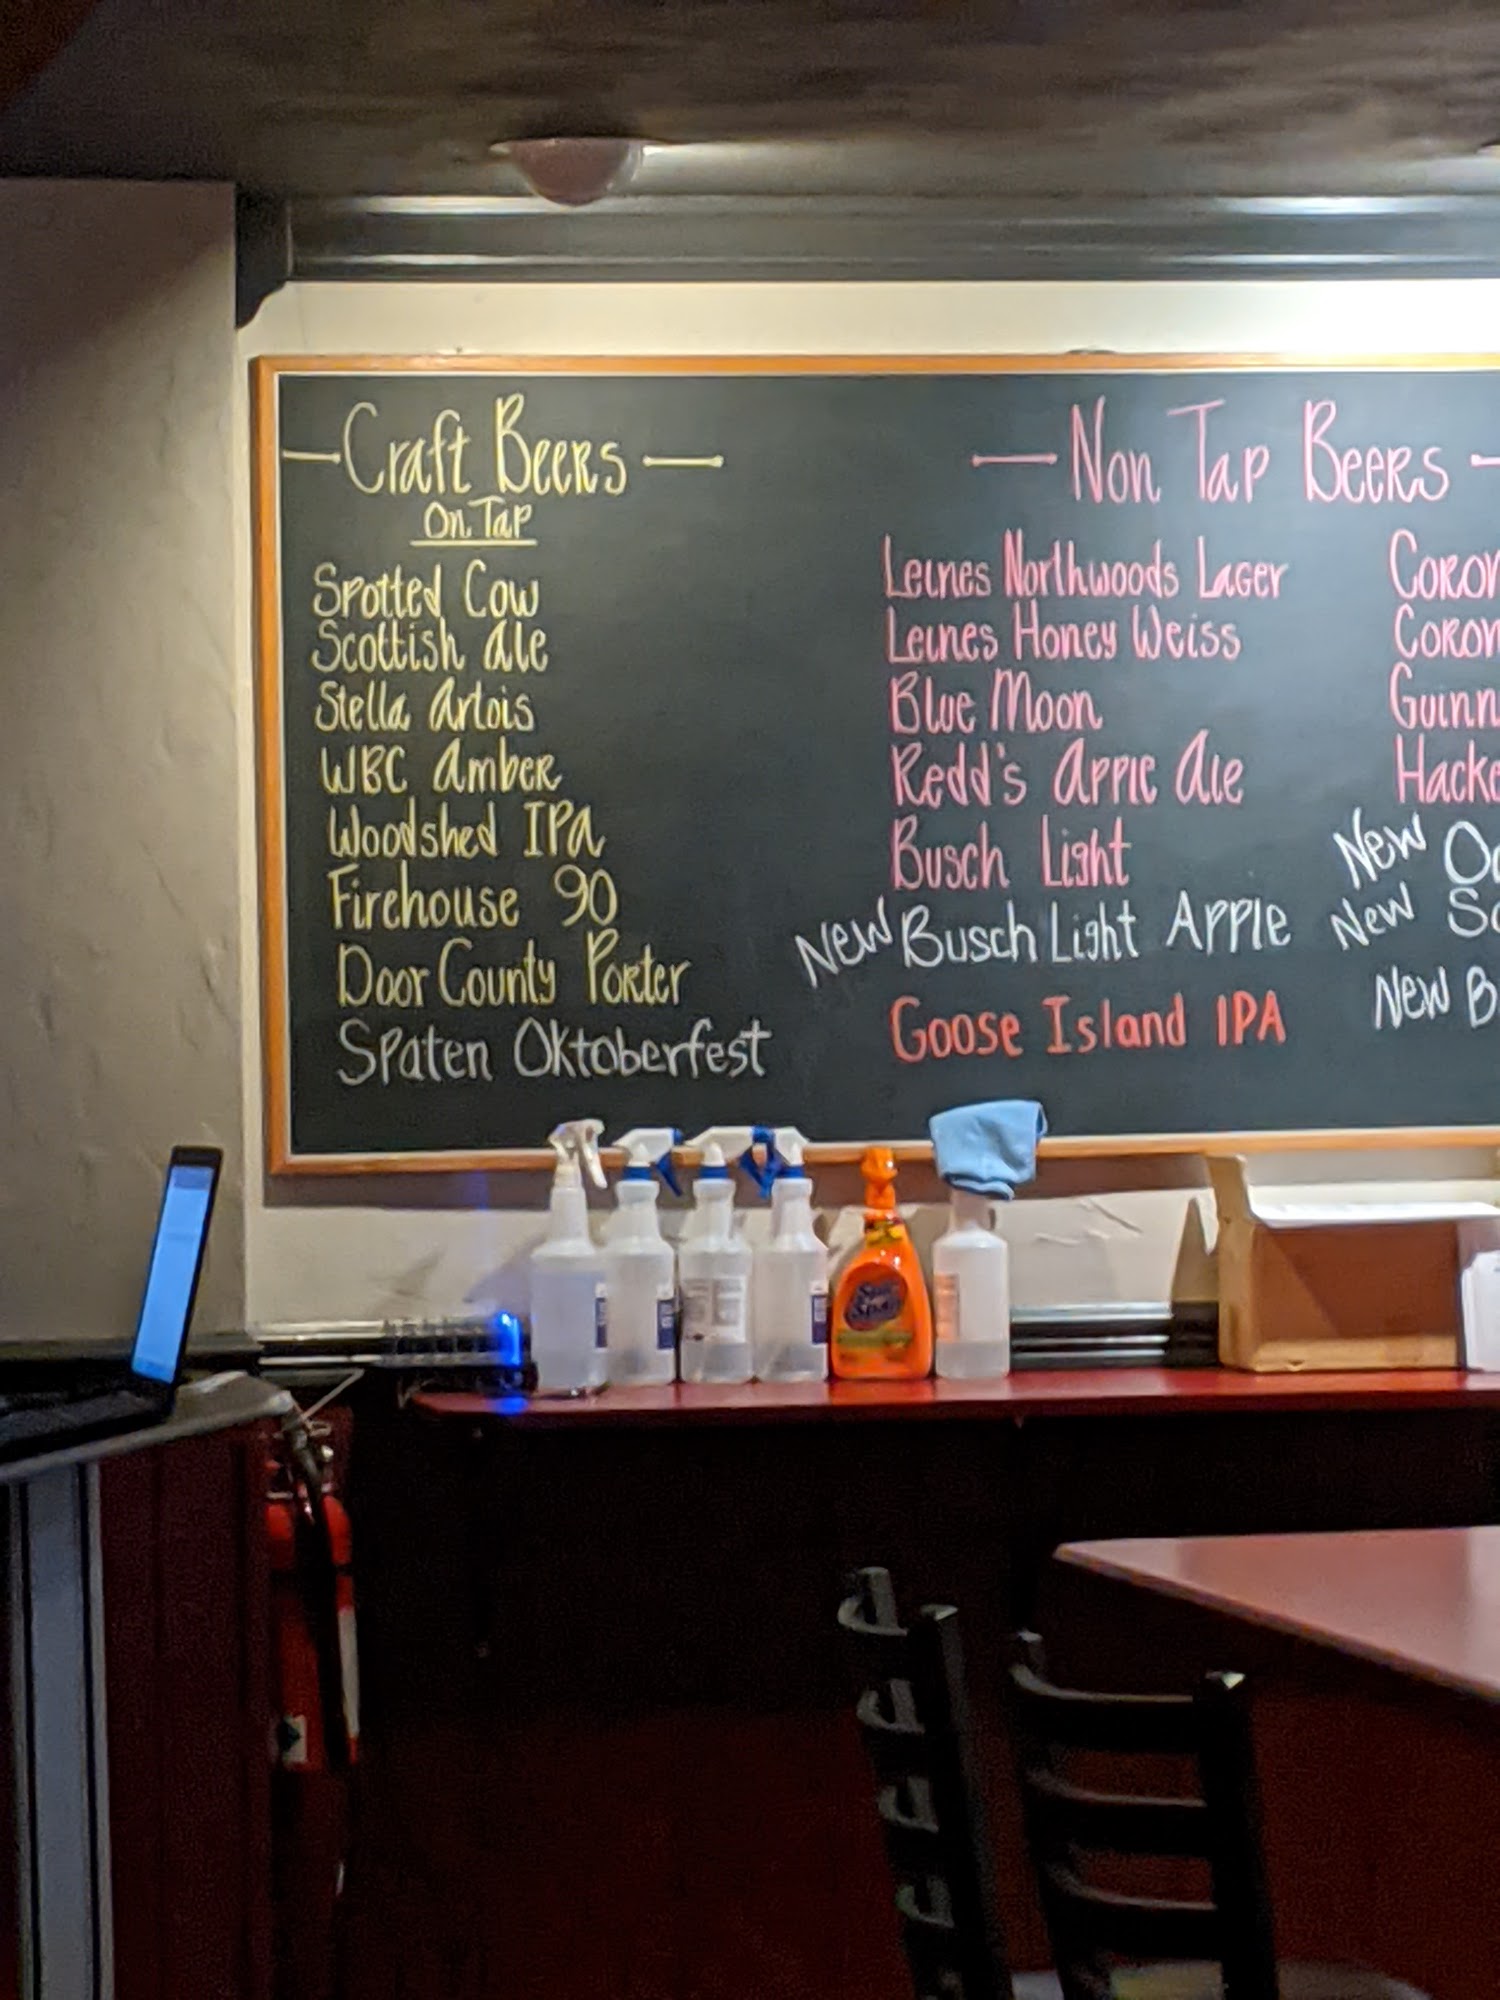 Craft Beers
On Tap
Spotted Cow
Scottish Ale
Stella Artois
WBC Amber
Woodshed IPA
Firehouse 90
Door County Porter
Spaten Oktoberfest
Non Tap Beers
Leines Northwoods Lager
Leines Honey Weiss
Blue Moon
Redd's Apple Ale
Busch Light
New Busch Light Apple
Goose Island IPA
Coron
Coron
Guinn
Hacke
New
New
New B